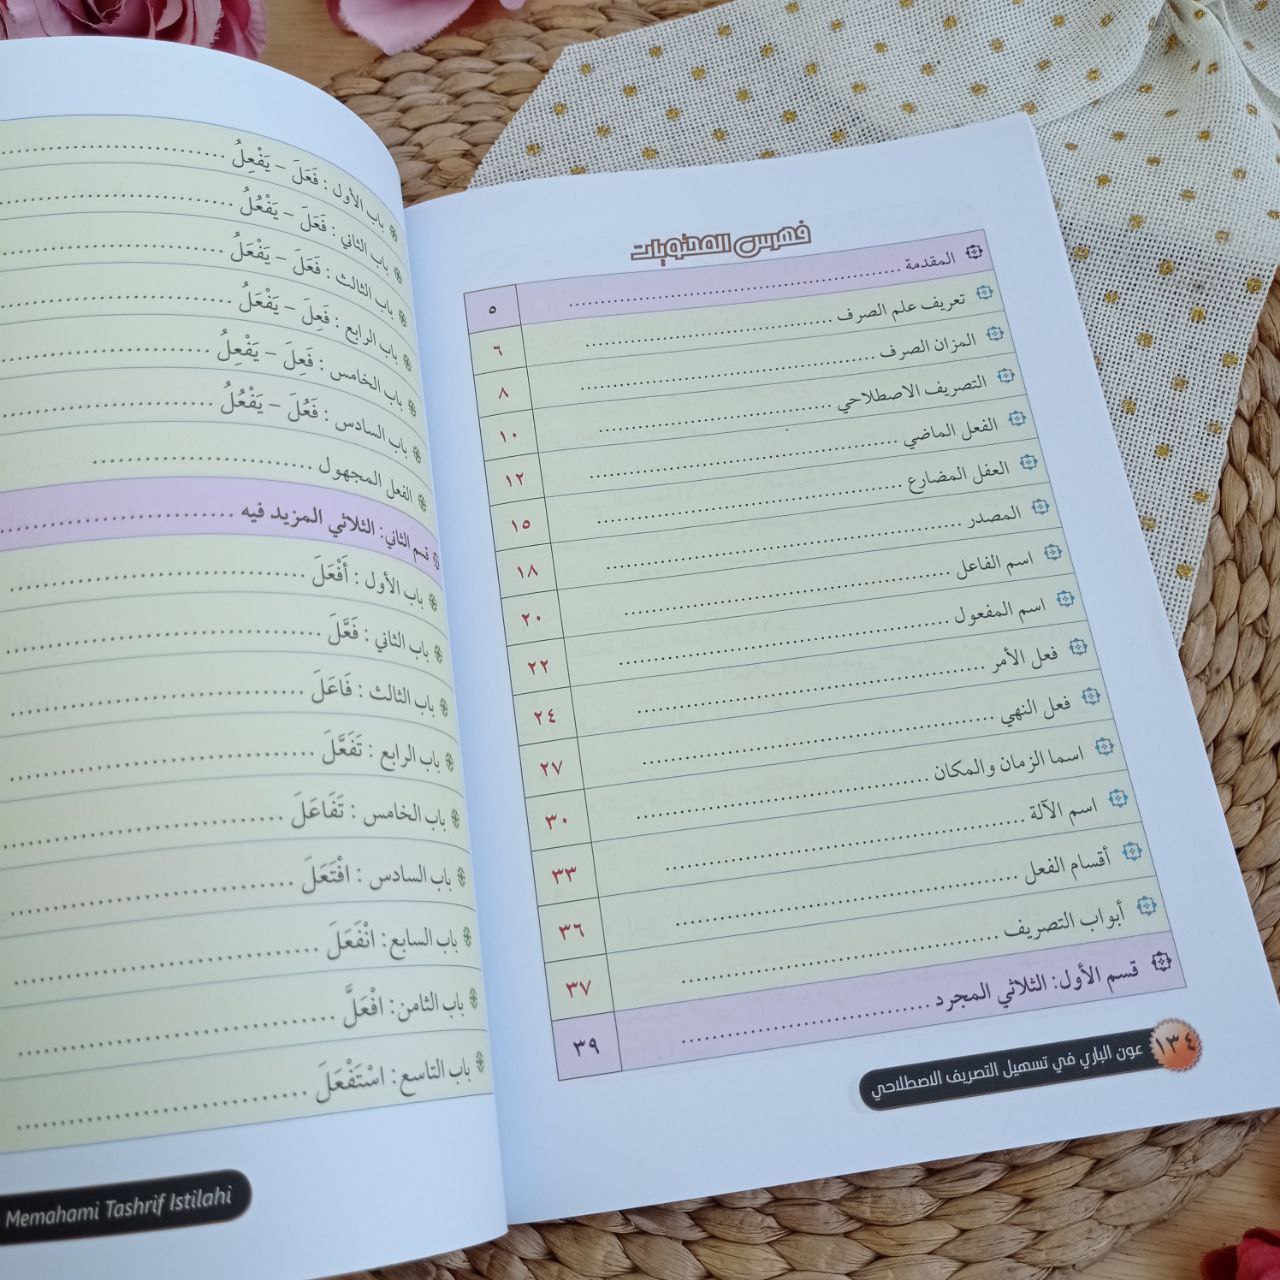 فهرس المحتويات
المقدمة ............ ٥
تعريف علم الصرف ............ ٦
المزان الصرف ............ ٨
التصريف الاصطلاحي ............ ١٠
الفعل الماضي ............ ١٢
العفل المضارع ............ ١٥
المصدر ............ ١٨
اسم الفاعل ............ ٢٠
اسم المفعول ............ ٢٢
فعل الأمر ............ ٢٤
فعل النهي ............ ٢٧
اسما الزمان والمكان ............ ٣٠
اسم الآلة ............ ٣٣
أقسام الفعل ............ ٣٦
أبواب التصريف ............ ٣٧
قسم الأول: الثلاثي المجرد ............ ٣٩
١٣٤ عون الباري في تسهيل التصريف الاصطلاحي
باب الأول : فَعَلَ – يَفْعِلُ ............
باب الثاني : فَعَلَ – يَفْعُلُ ............
باب الثالث : فَعَلَ – يَفْعَلُ ............
باب الرابع : فَعِلَ – يَفْعَلُ ............
باب الخامس : فَعِلَ – يَفْعِلُ ............
باب السادس : فَعُلَ – يَفْعُلُ ............
الفعل المجهول ............
قسم الثاني: الثلاثي المزيد فيه ............
باب الأول : أَفْعَلَ ............
باب الثاني : فَعَّلَ ............
باب الثالث : فَاعَلَ ............
باب الرابع : تَفَعَّلَ ............
باب الخامس : تَفَاعَلَ ............
باب السادس : افْتَعَلَ ............
باب السابع: انْفَعَلَ ............
باب الثامن: افْعَلَّ ............
باب التاسع: اسْتَفْعَلَ ............
Memahami Tashrif Istilahi